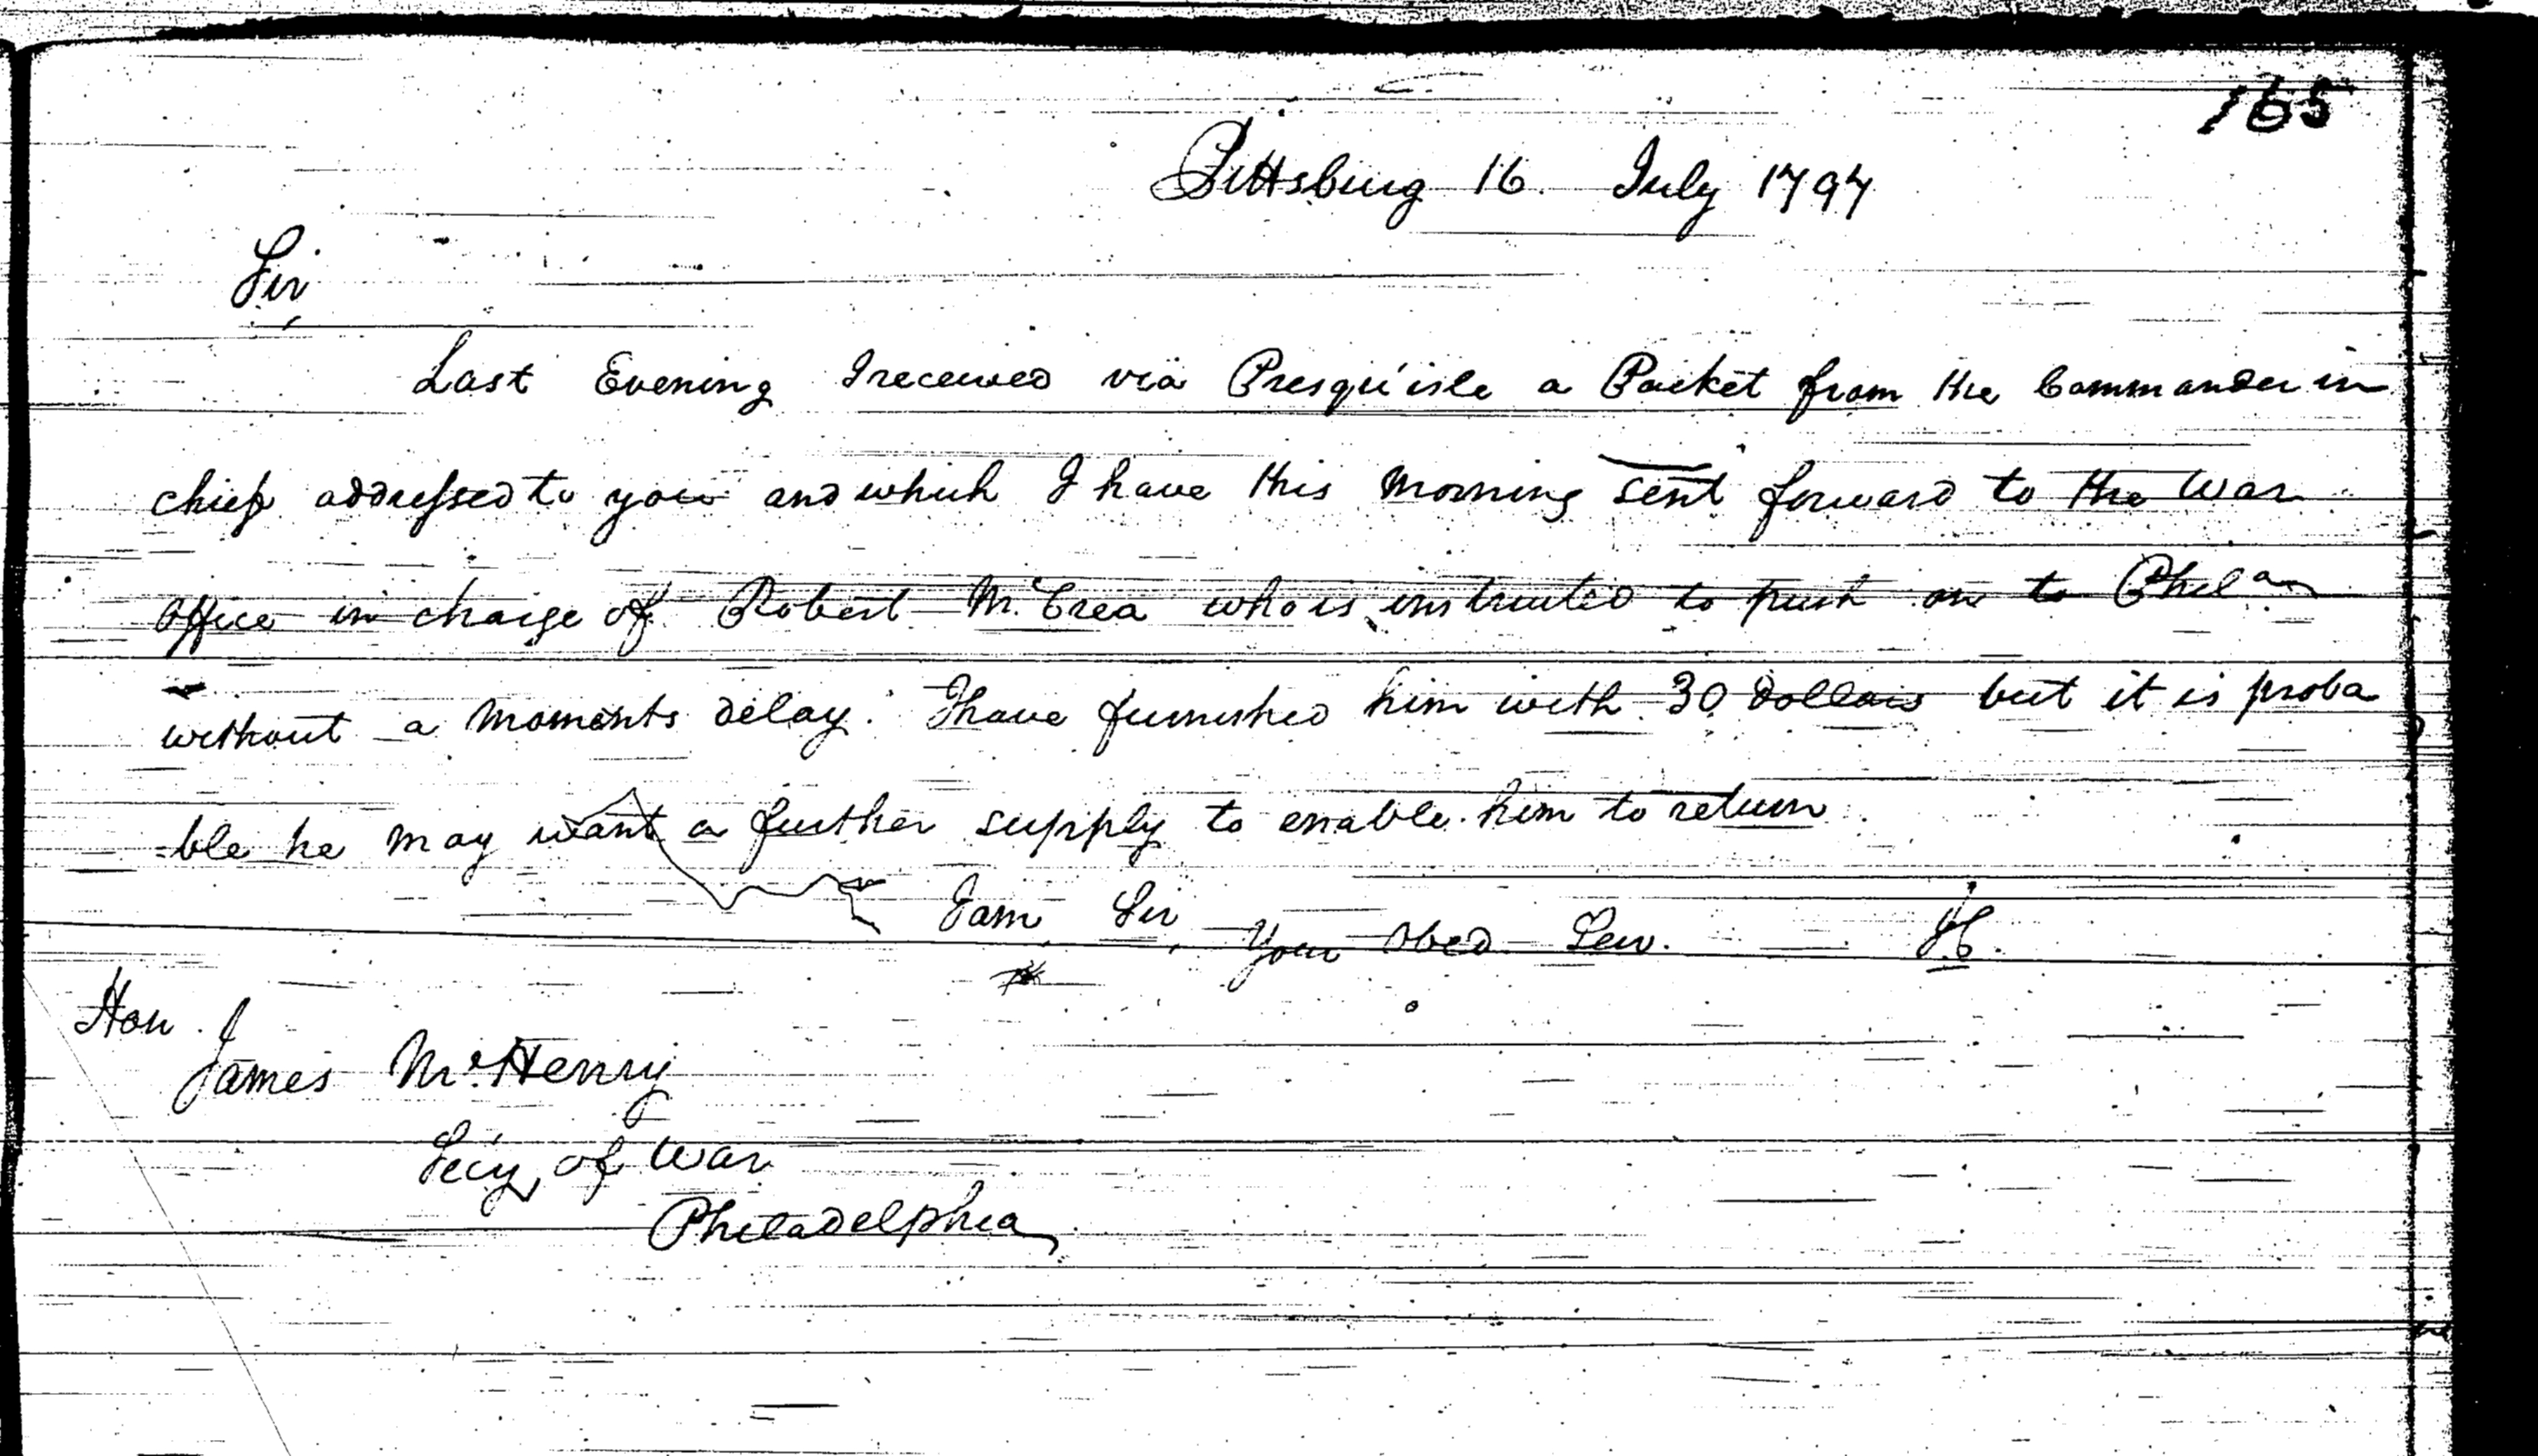 165
Pittsburg 16. July 1797
Sir,
Last Evening I received via Presqu'isle a Packet from the Commander in
chief addressed to you and which I have this morning sent forward to the War
office in charge of Robert McCrea who is instructed to push on to Phila
without a moments delay. I have furnished him with 30 Dollars but it is proba
=ble he may want a further supply to enable him to return
I am Sir, Your Obed Serv.
Hon.
James McHenry
Secy of War
Philadelphia